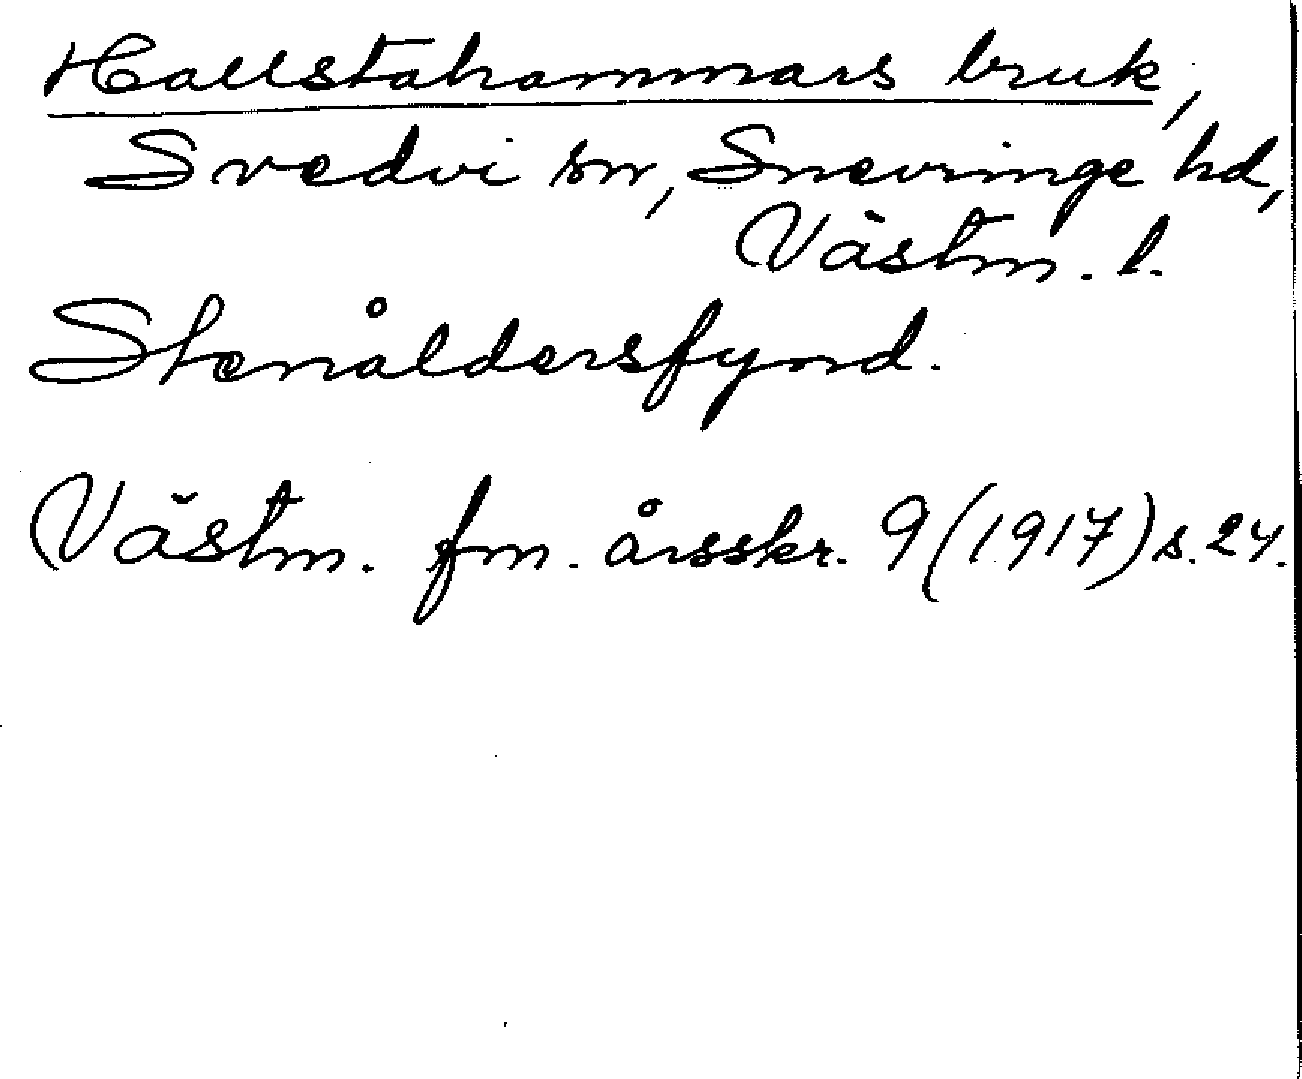 Hallstahammars bruk,
Svedvi sn, Snevringe hd,
Västm. l.
Stenåldersfynd.
Västm. fm. årsskr. 9 (1917) s. 24.